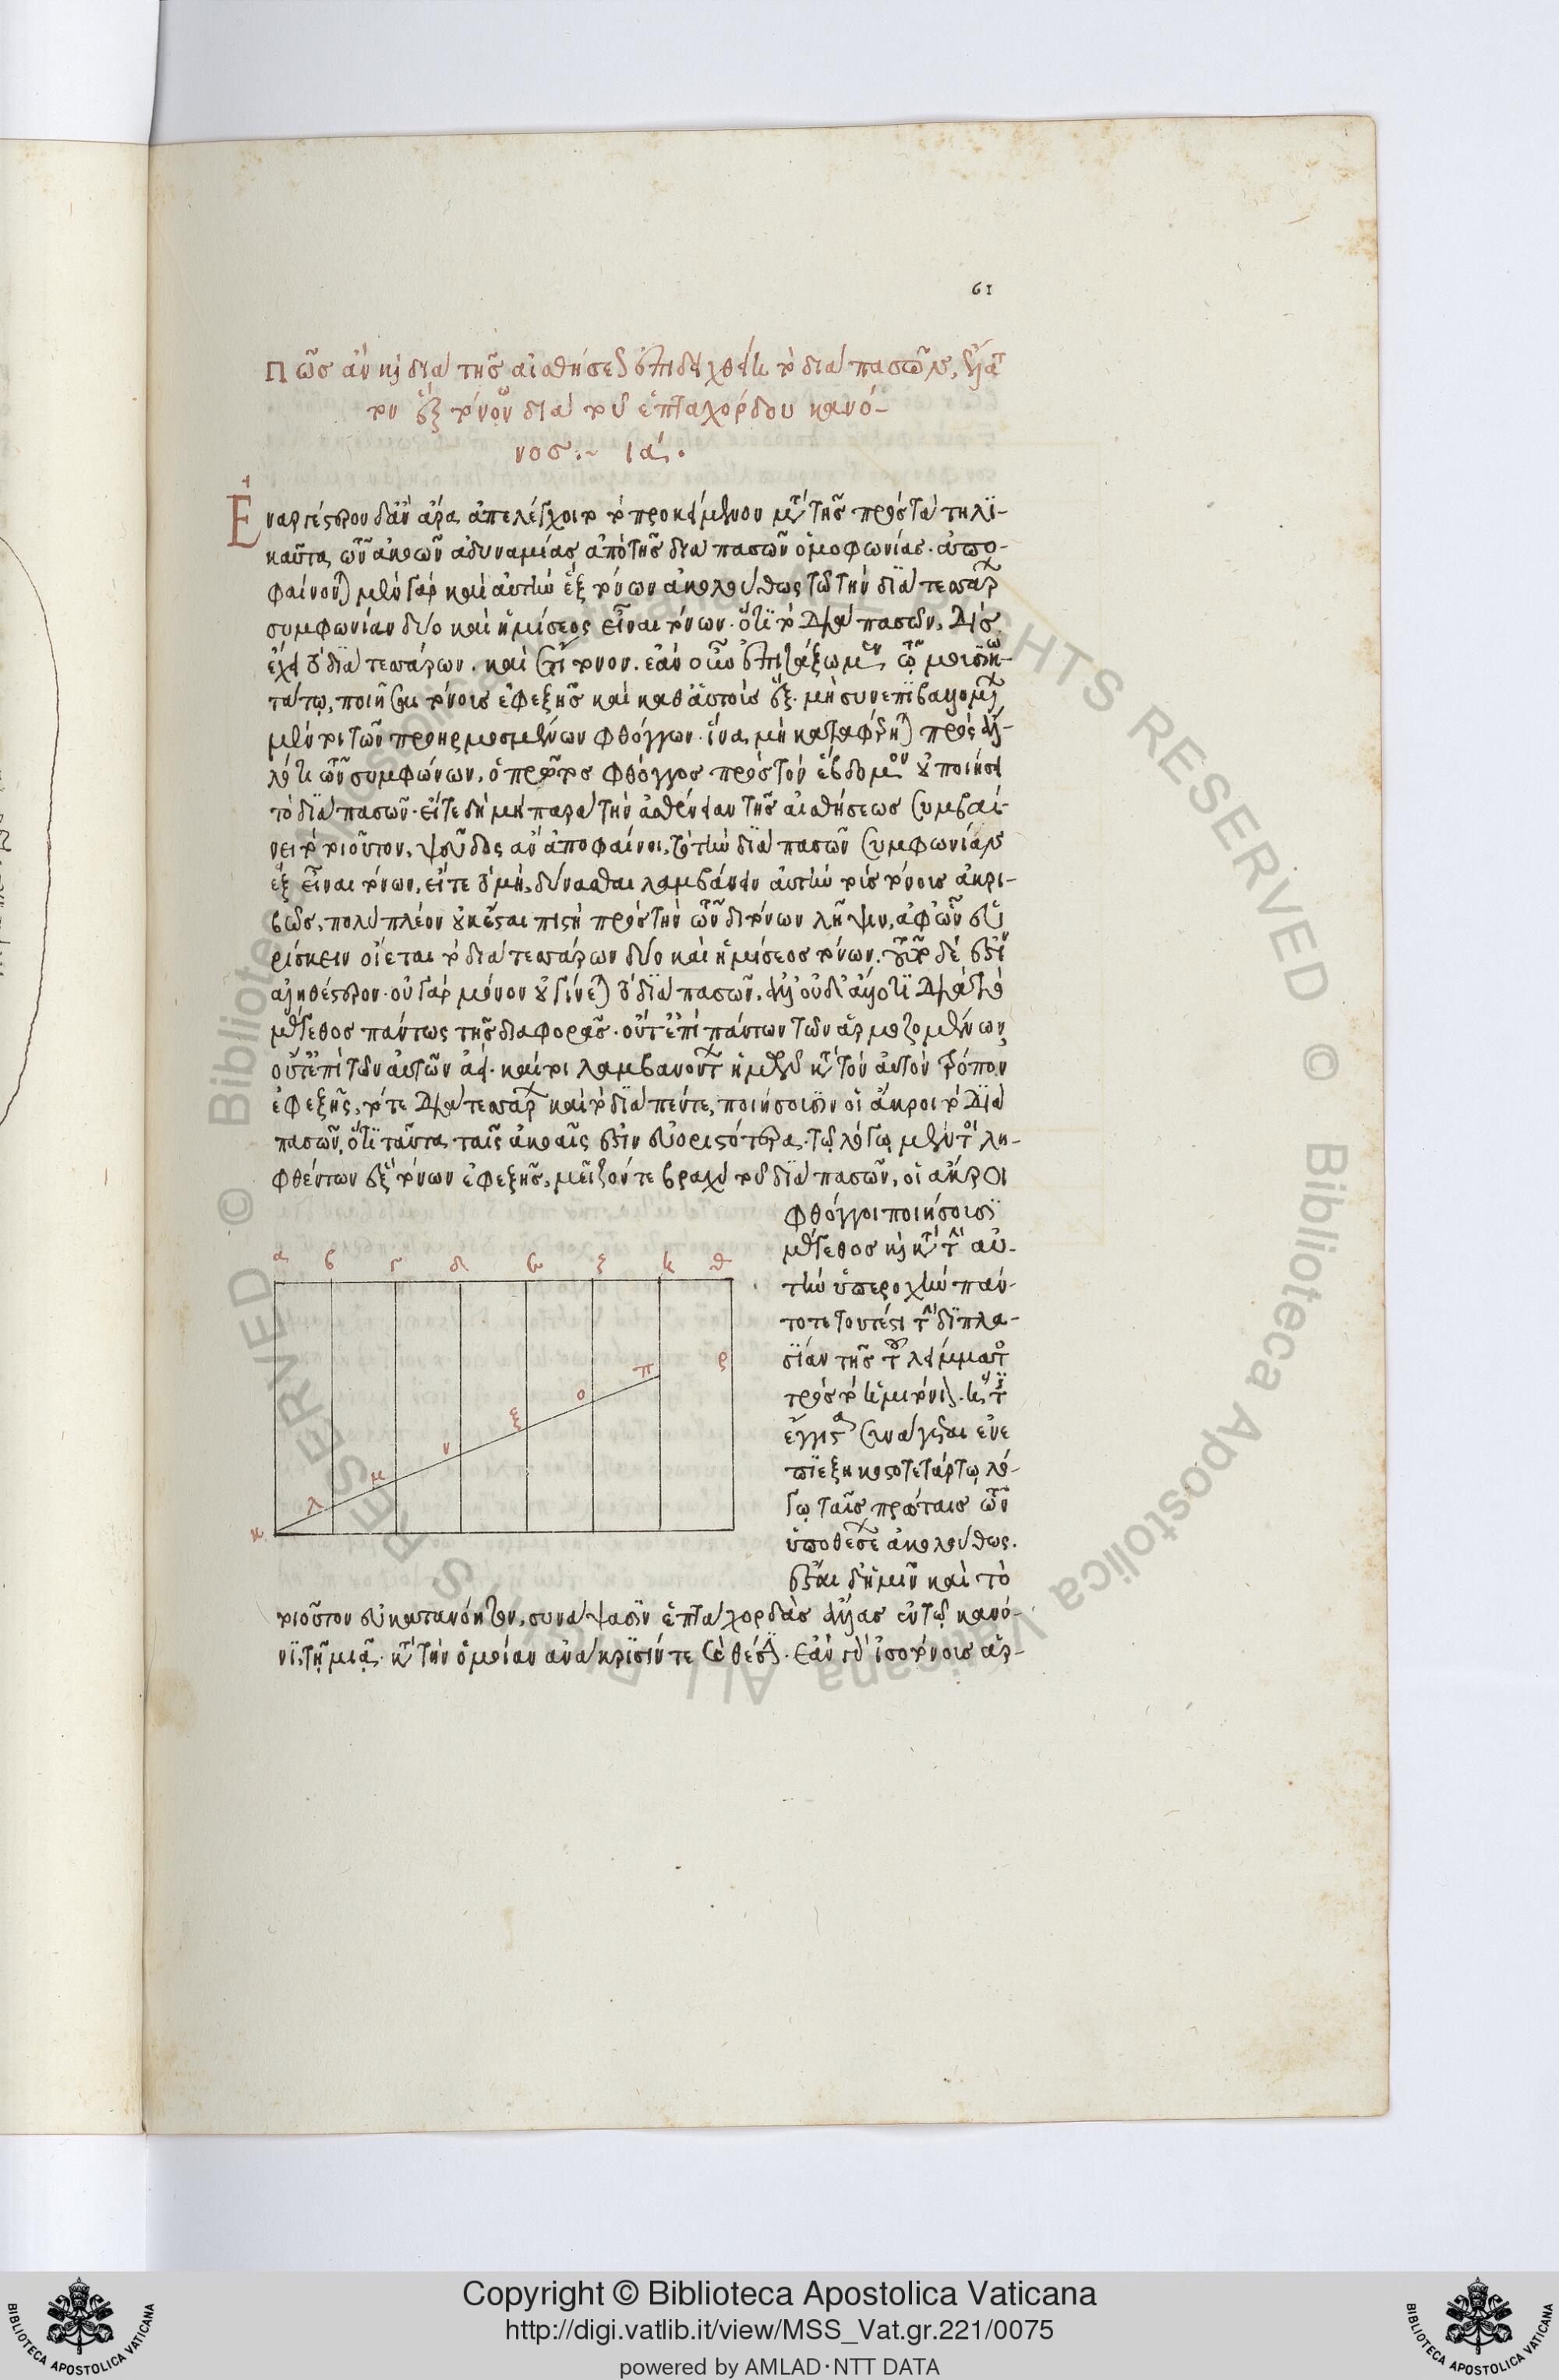 61
Πῶς ἂν καὶ διὰ τῆς αἰσθήσεως ἐπιδειχθείη τὸ διὰ πασῶν, ἔλατ
τον ἓξ τόνων διὰ τοῦ ἑπταχόρδου κανό-
νος.~ ια.
Ἐναργέστερον δ' ἂν ἄρα ἀπελέγχοιτο τὸ προκείμενον μετὰ τῆς πρὸς τὰ τηλι-
καῦτα τῶν ἀκοῶν ἀδυναμίας ἀπὸ τῆς διὰ πασῶν ὁμοφωνίας. ἀπο-
φαίνονται μὲν γὰρ καὶ αὐτὴν ἓξ τόνων ἀκολούθως τῷ τὴν διὰ τεσσάρων
συμφωνίαν δύο καὶ ἡμίσεος εἶναι τόνων. ὅτι τὸ διὰ πασῶν, δὶς
ἔχει τὸ διὰ τεσσάρων. καὶ ἔτι τόνον. ἐὰν οὖν ἐπιτάξωμεν τῷ μουσικω-
τάτῳ, ποιῆσαι τόνους ἐφεξῆς καὶ καθ' αὑτοὺς ἕξ. μὴ συνεπιβαλλομένων
μέντοι τῶν προηρμοσμένων φθόγγων. ἵνα μὴ καταφέρηται πρὸς ἄλ-
λό τι τῶν συμφώνων, ὁ πρῶτος φθόγγος πρὸς τὸν ἕβδομον οὐ ποιήσει
τὸ διὰ πασῶν. εἴτε δὴ μὴ παρὰ τὴν ἀσθένειαν τῆς αἰσθήσεως συμβαί-
νει τὸ τοιοῦτον, ψεῦδος ἂν ἀποφαίνοι, τὸ τὴν διὰ πασῶν συμφωνίαν
ἓξ εἶναι τόνων, εἴτε τὸ μὴ, δύνασθαι λαμβάνειν αὐτὴν τοὺς τόνους ἀκρι-
βῶς, πολὺ πλέον οὐκ ἔσται πιστὴ πρὸς τὴν τῶν διτόνων λῆψιν, ἀφ' ὧν εὑ
ρίσκειν οἴεται τὸ διὰ τεσσάρων δύο καὶ ἡμίσεος τόνων. τοῦτο δέ ἐστιν
ἀληθέστερον. οὐ γὰρ μόνον οὐ γίνεται τὸ διὰ πασῶν, ἀλλ' οὐδ' ἄλλο τι διὰ τὸ
μέγεθος πάντως τῆς διαφορᾶς. οὔτ' ἐπὶ πάντων τῶν ἁρμοζομένων
οὔτ' ἐπὶ τῶν αὐτῶν ἀεί. καίτοι λαμβανόντων ἡμῶν κατὰ τὸν αὐτὸν τρόπον
ἐφεξῆς, τό τε διὰ τεσσάρων καὶ τὸ διὰ πέντε, ποιήσουσιν οἱ ἄκροι τὸ διὰ
πασῶν, ὅτι ταῦτα ταῖς ἀκοαῖς ἐστὶν εὐοριστότερα. τῷ λόγῳ μέντοι λη-
φθέντων ἓξ τόνων ἐφεξῆς, μεῖζόν τε βραχὺ τοῦ διὰ πασῶν, οἱ ἄκροι
φθόγγοι ποιήσουσι
μέγεθος καὶ κατὰ τὴν αὐ-
τὴν ὑπεροχὴν πάν-
τοτε τουτέστι τὴν διπλα-
σίαν τῆς τοῦ λείμματος
πρὸς τὸ ἡμιτόνιον.
ἔγγιστα συνάγεται ἐν
ἐπιεξηκοστοτετάρτῳ λό-
γῳ ταῖς πρώταις τῶν
ὑποθέσεων ἀκολούθως.
ἔσται δ' ἡμῖν καὶ τὸ
τοιοῦτον εὐκατανόητον, συνάψασιν ἑπτὰ χορδὰς ἄλλας ἐν τῷ κανό-
νι, τῇ μιᾷ. κατὰ τὴν ὁμοίαν ἀνάκρισίν τε καὶ θέσιν. ἐὰν γὰρ ἰσοτόνους ἁρ-
α β γ δ ε ζ η θ
κ λ μ ν ξ ο π ρ
Copyright © Biblioteca Apostolica Vaticana
http://digi.vatlib.it/view/MSS_Vat.gr.221/0075
powered by AMLAD·NTT DATA
BIBLIOTECA APOSTOLICA VATICANA
BIBLIOTECA APOSTOLICA VATICANA
© Biblioteca Apostolica Vaticana ALL RIGHTS RESERVED
© Biblioteca Apostolica Vaticana ALL RIGHTS RESERVED